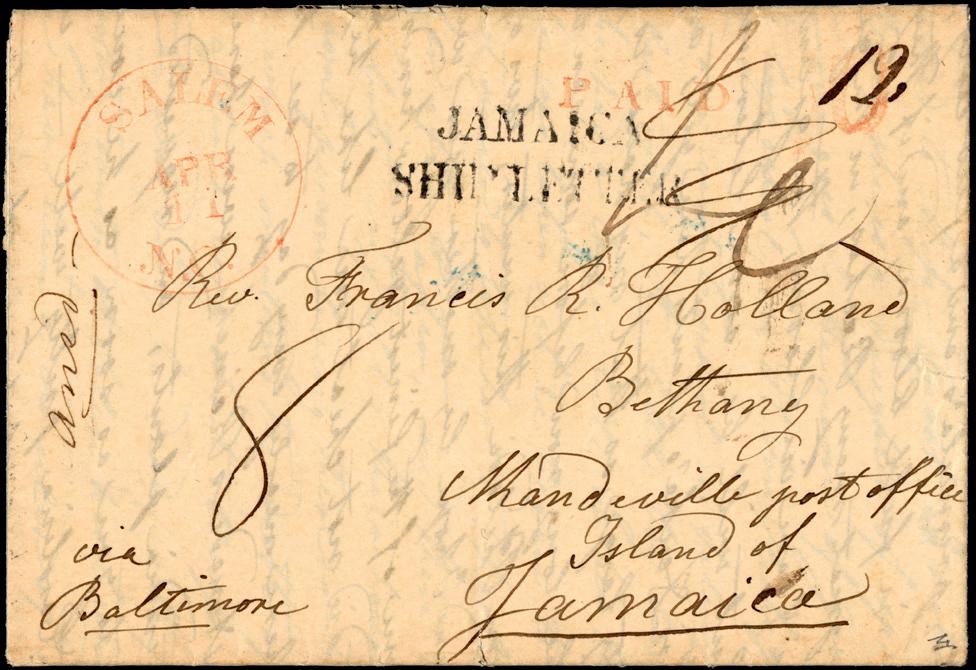 SALEM
APR
11
N.C.
PAID
12,
JAMAICA
SHIP LETTER
Rev. Francis R. Holland
Bethany
Mandeville post office
Island of
Jamaica
8
ansd
via
Baltimore